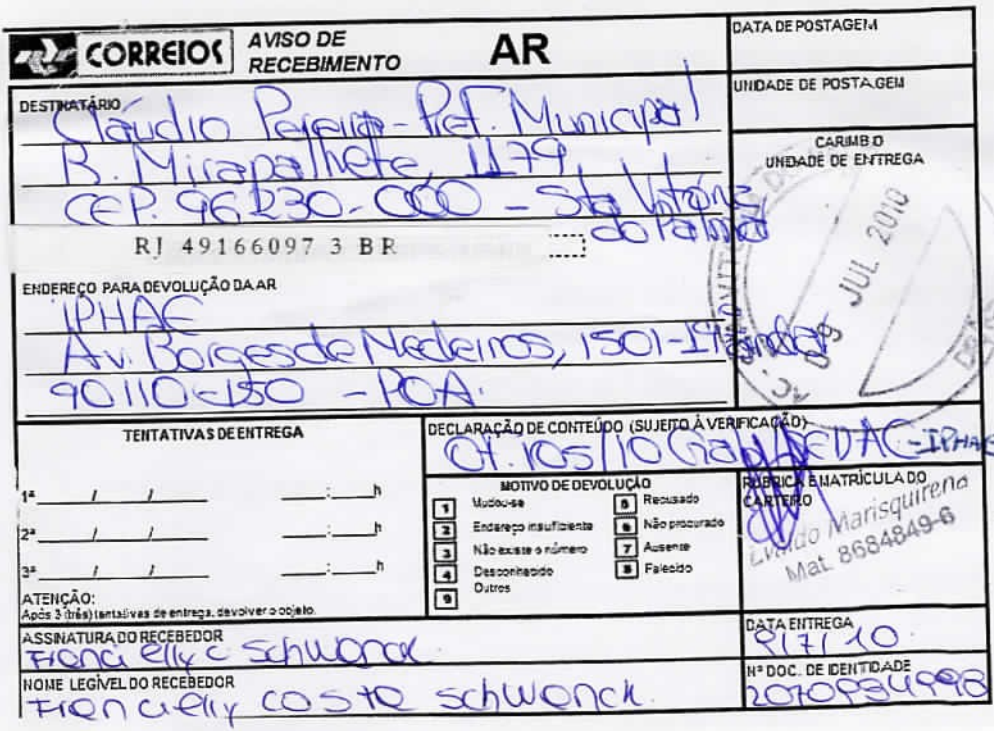 CORREIOS
AVISO DE RECEBIMENTO
AR
DATA DE POSTAGEM
UNIDADE DE POSTAGEM
CARIMBO UNIDADE DE ENTREGA
09 JUL 2010
DESTINATÁRIO
Cláudio Pereira - Pref. Municipal
R. Mirapalhete, 1179
CEP. 96230-000 - Sta Vitória
do Palmar
RJ 49166097 3 BR
ENDEREÇO PARA DEVOLUÇÃO DA AR
IPHAE
Av. Borges de Medeiros, 1501-19º andar
90110-150 - POA.
TENTATIVAS DE ENTREGA
1ª / / : h
2ª / / : h
3ª / / : h
ATENÇÃO:
Após 3 (três) tentativas de entrega, devolver o objeto.
DECLARAÇÃO DE CONTEÚDO (SUJEITO À VERIFICAÇÃO)
Of. 105/10 Gab/SEDAC-IPHAE
MOTIVO DE DEVOLUÇÃO
1 Mudou-se
2 Endereço insuficiente
3 Não existe o número
4 Desconhecido
9 Outros
5 Recusado
6 Não procurado
7 Ausente
8 Falecido
RUBRICA E MATRÍCULA DO CARTEIRO
Marisquirena
Mat. 8684849-6
ASSINATURA DO RECEBEDOR
Francielly C Schwonck
DATA ENTREGA
9/7/10
NOME LEGÍVEL DO RECEBEDOR
Francielly Costa Schwonck.
Nº DOC. DE IDENTIDADE
2070934998